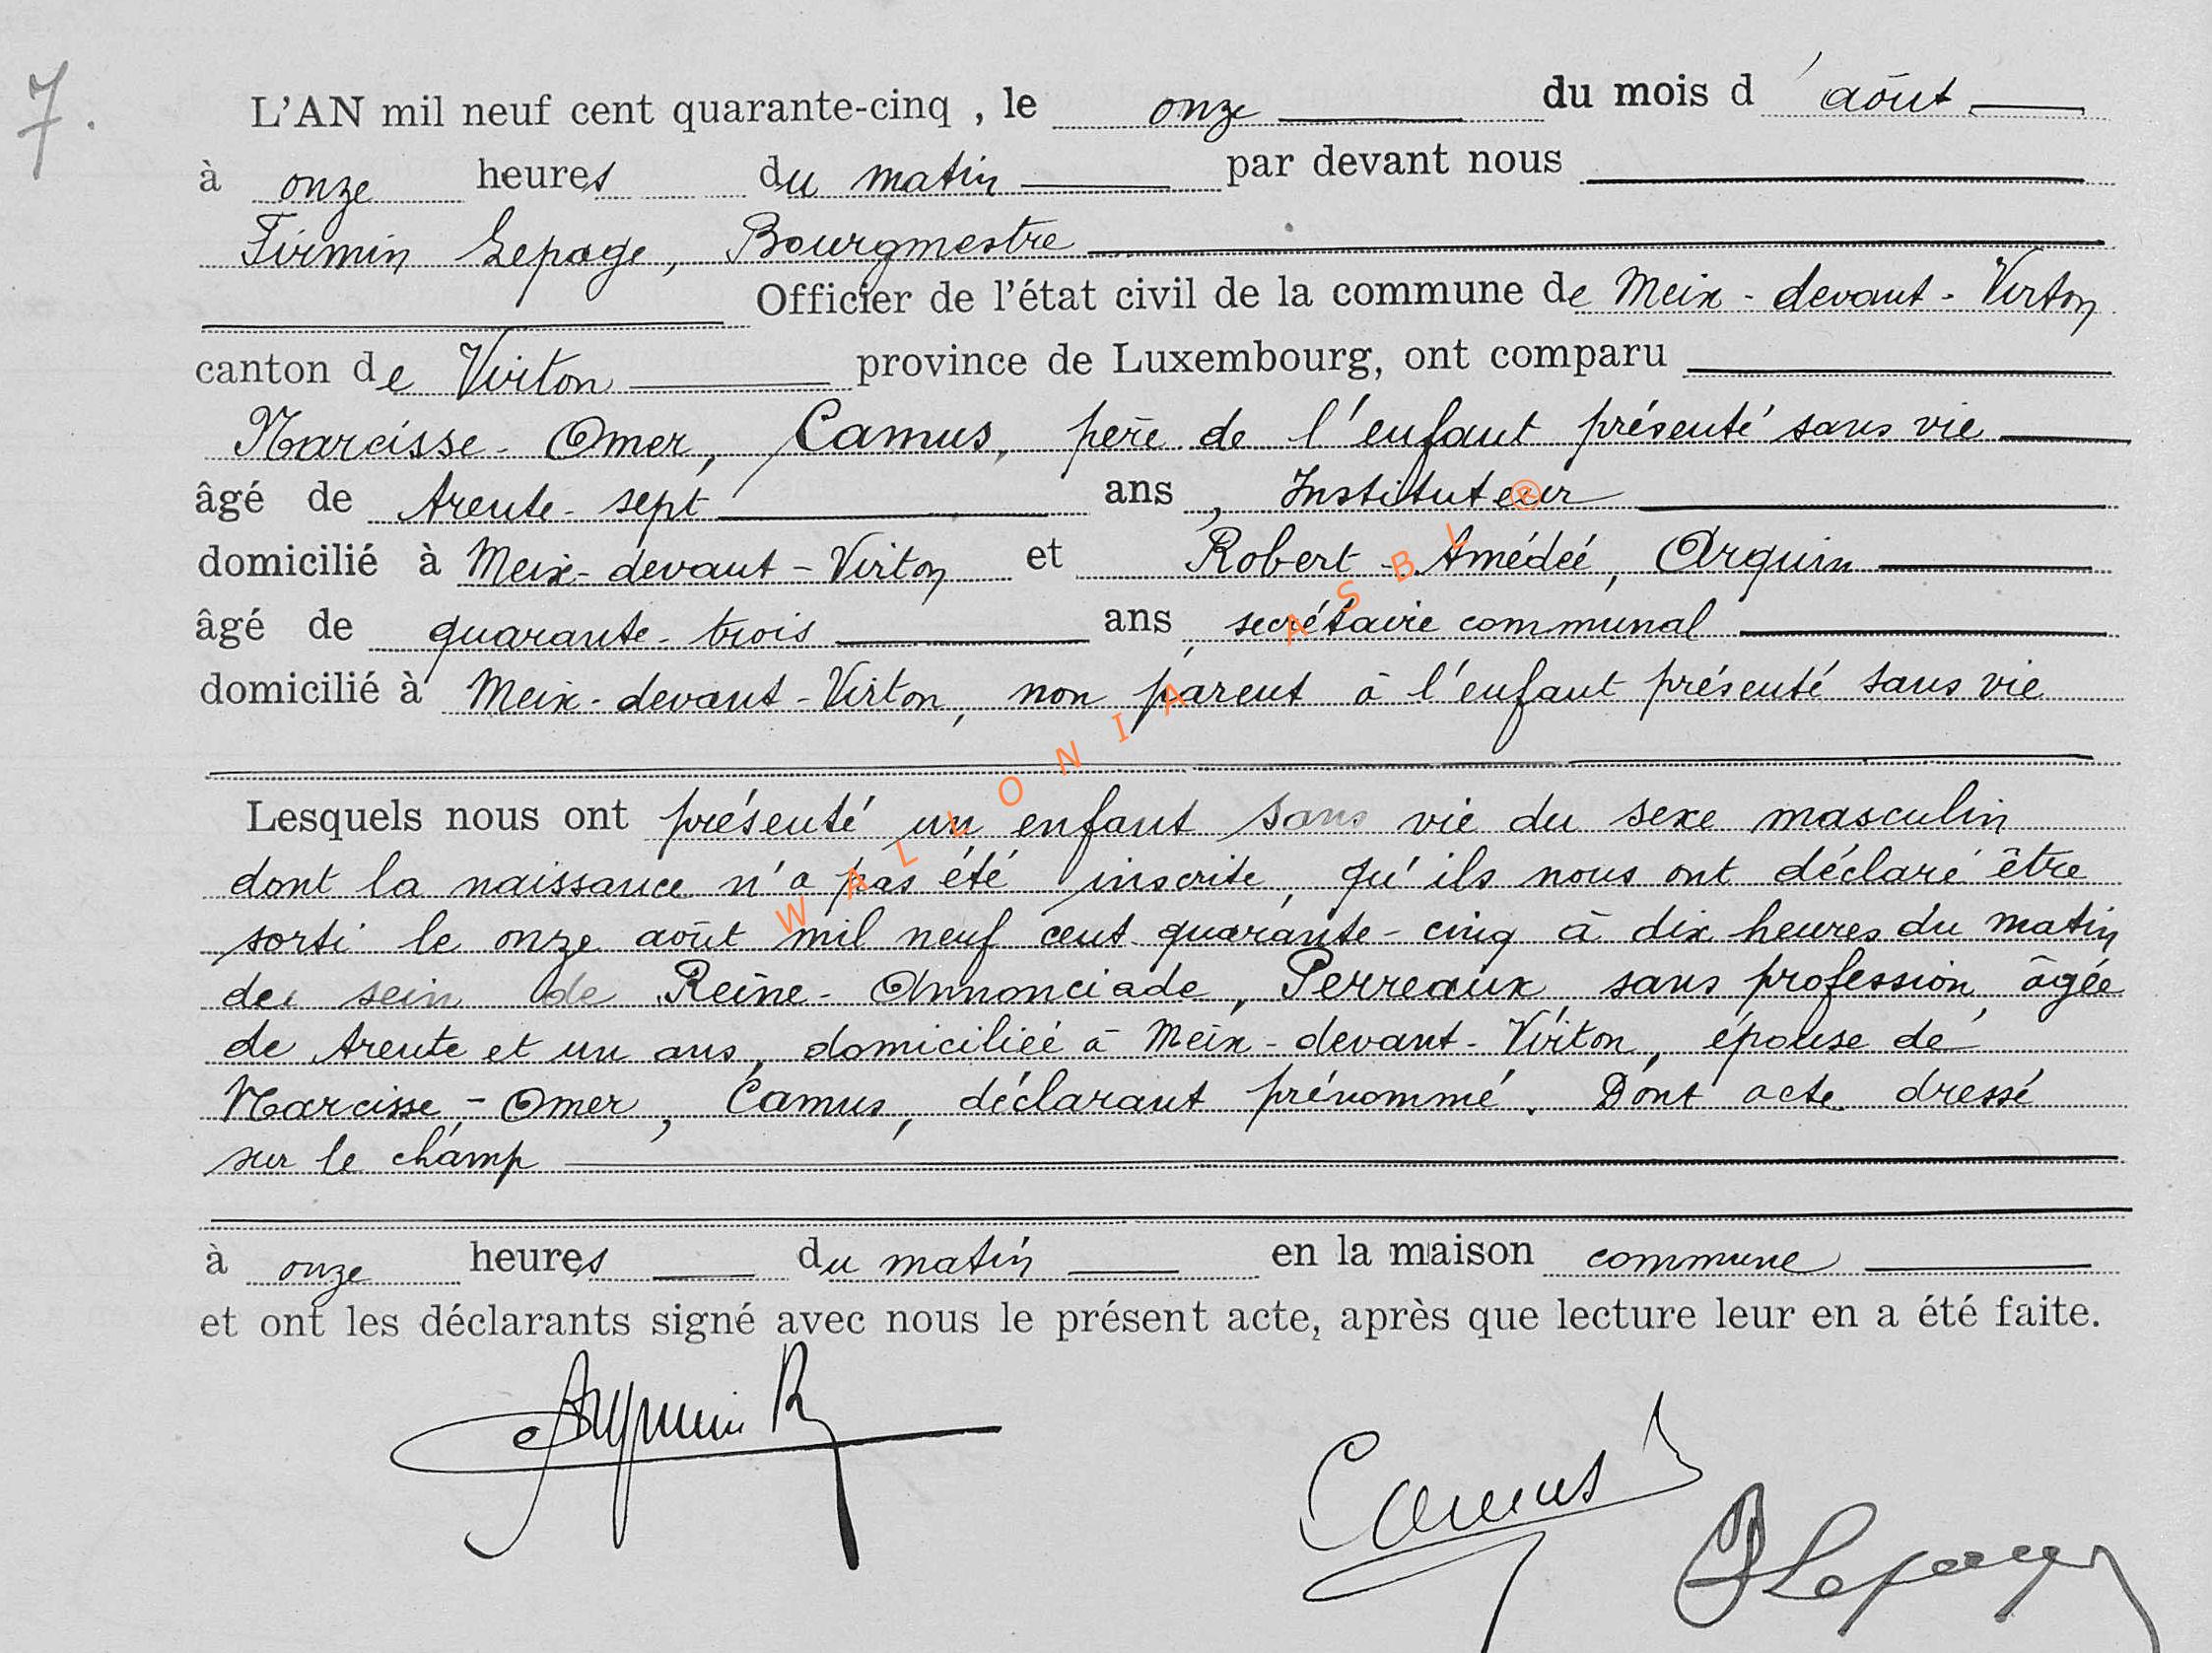 7.
L'AN mil neuf cent quarante-cinq , le onze du mois d'août
à onze heures du matin par devant nous
Firmin Lepage, Bourgmestre
Officier de l'état civil de la commune de Meix-devant-Virton
canton de Virton province de Luxembourg, ont comparu
Narcisse-Omer, Camus, père de l'enfant présenté sans vie
âgé de trente-sept ans, Instituteur
domicilié à Meix-devant-Virton et Robert-Amédéé, Arquin
âgé de quarante-trois ans, secrétaire communal
domicilié à Meix-devant-Virton, non parent à l'enfant présenté sans vie
Lesquels nous ont présenté un enfant sans vie du sexe masculin
dont la naissance n'a pas été inscrite, qu'ils nous ont déclaré être
sorti le onze août mil neuf cent quarante-cinq à dix heures du matin
du sein de Reine-Annonciade, Perreaux, sans profession, âgée
de trente et un ans, domiciliée à Meix-devant-Virton, épouse de
Narcisse-Omer, Camus, déclarant prénommé. Dont acte dressé
sur le champ
à onze heures du matin en la maison commune
et ont les déclarants signé avec nous le présent acte, après que lecture leur en a été faite.
Arquin R
Camus
F Lepage
WALLONIA ASBL ®